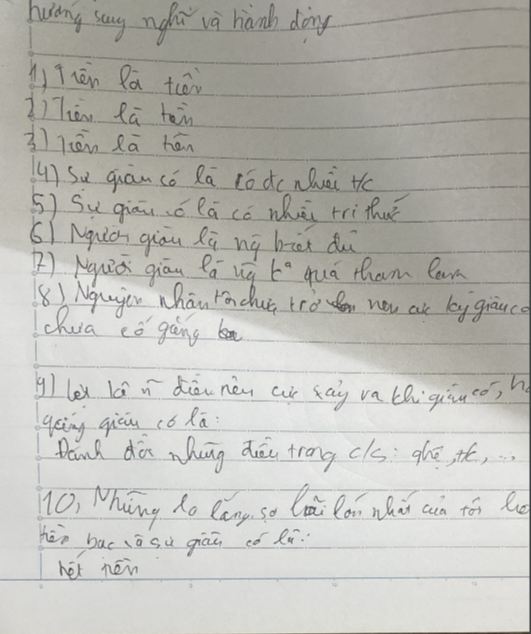 hướng suy nghĩ và hành động
1) Tiền là tiền
2) Tiền là tiền
3) Tiền là tiền
4) Sự giàu có là có đc nhiều tc
5) Sự giàu có là có nhiều tri thức
6) Người giàu là ng biết đủ
7) Người giàu là ng k° quá tham lam
8) Nguyên nhân tôi chưa trở nên cực kỳ giàu có
chưa cố gắng
9) kê n điều nên cực xảy ra khi giàu có, h
giàu có là:
Đánh đổi những điều trong c/s: ghệ, tc, ...
10, Những lo lắng sợ lớn nhất của tôi
tiền bạc và sự giàu có là:
hết tiền